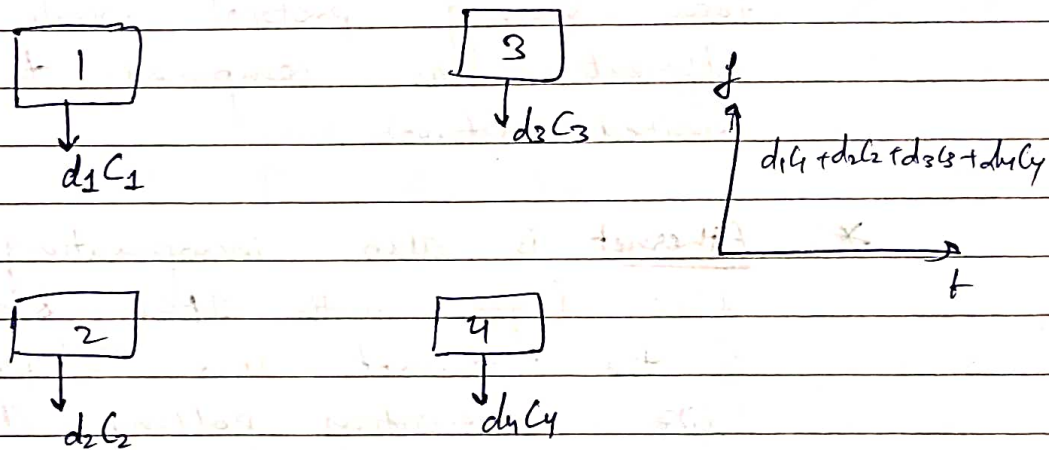 1
3
d1C1
d3C3
f
d1C1+d2C2+d3C3+d4C4
t
2
4
d2C2
d4C4